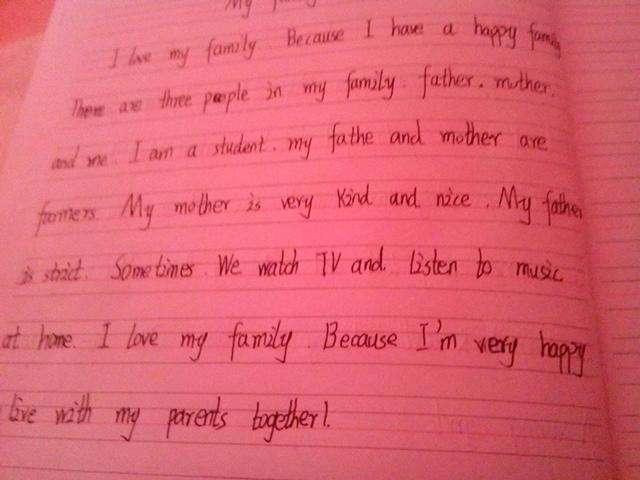 My family
I love my family. Because I have a happy family
There are three people in my family. father. mother.
and me. I am a student. my fathe and mother are
farmers. My mother is very kind and nice. My father
is strict. Sometimes. We watch TV and listen to music
at home. I love my family. Because I'm very happy
live with my parents together!.